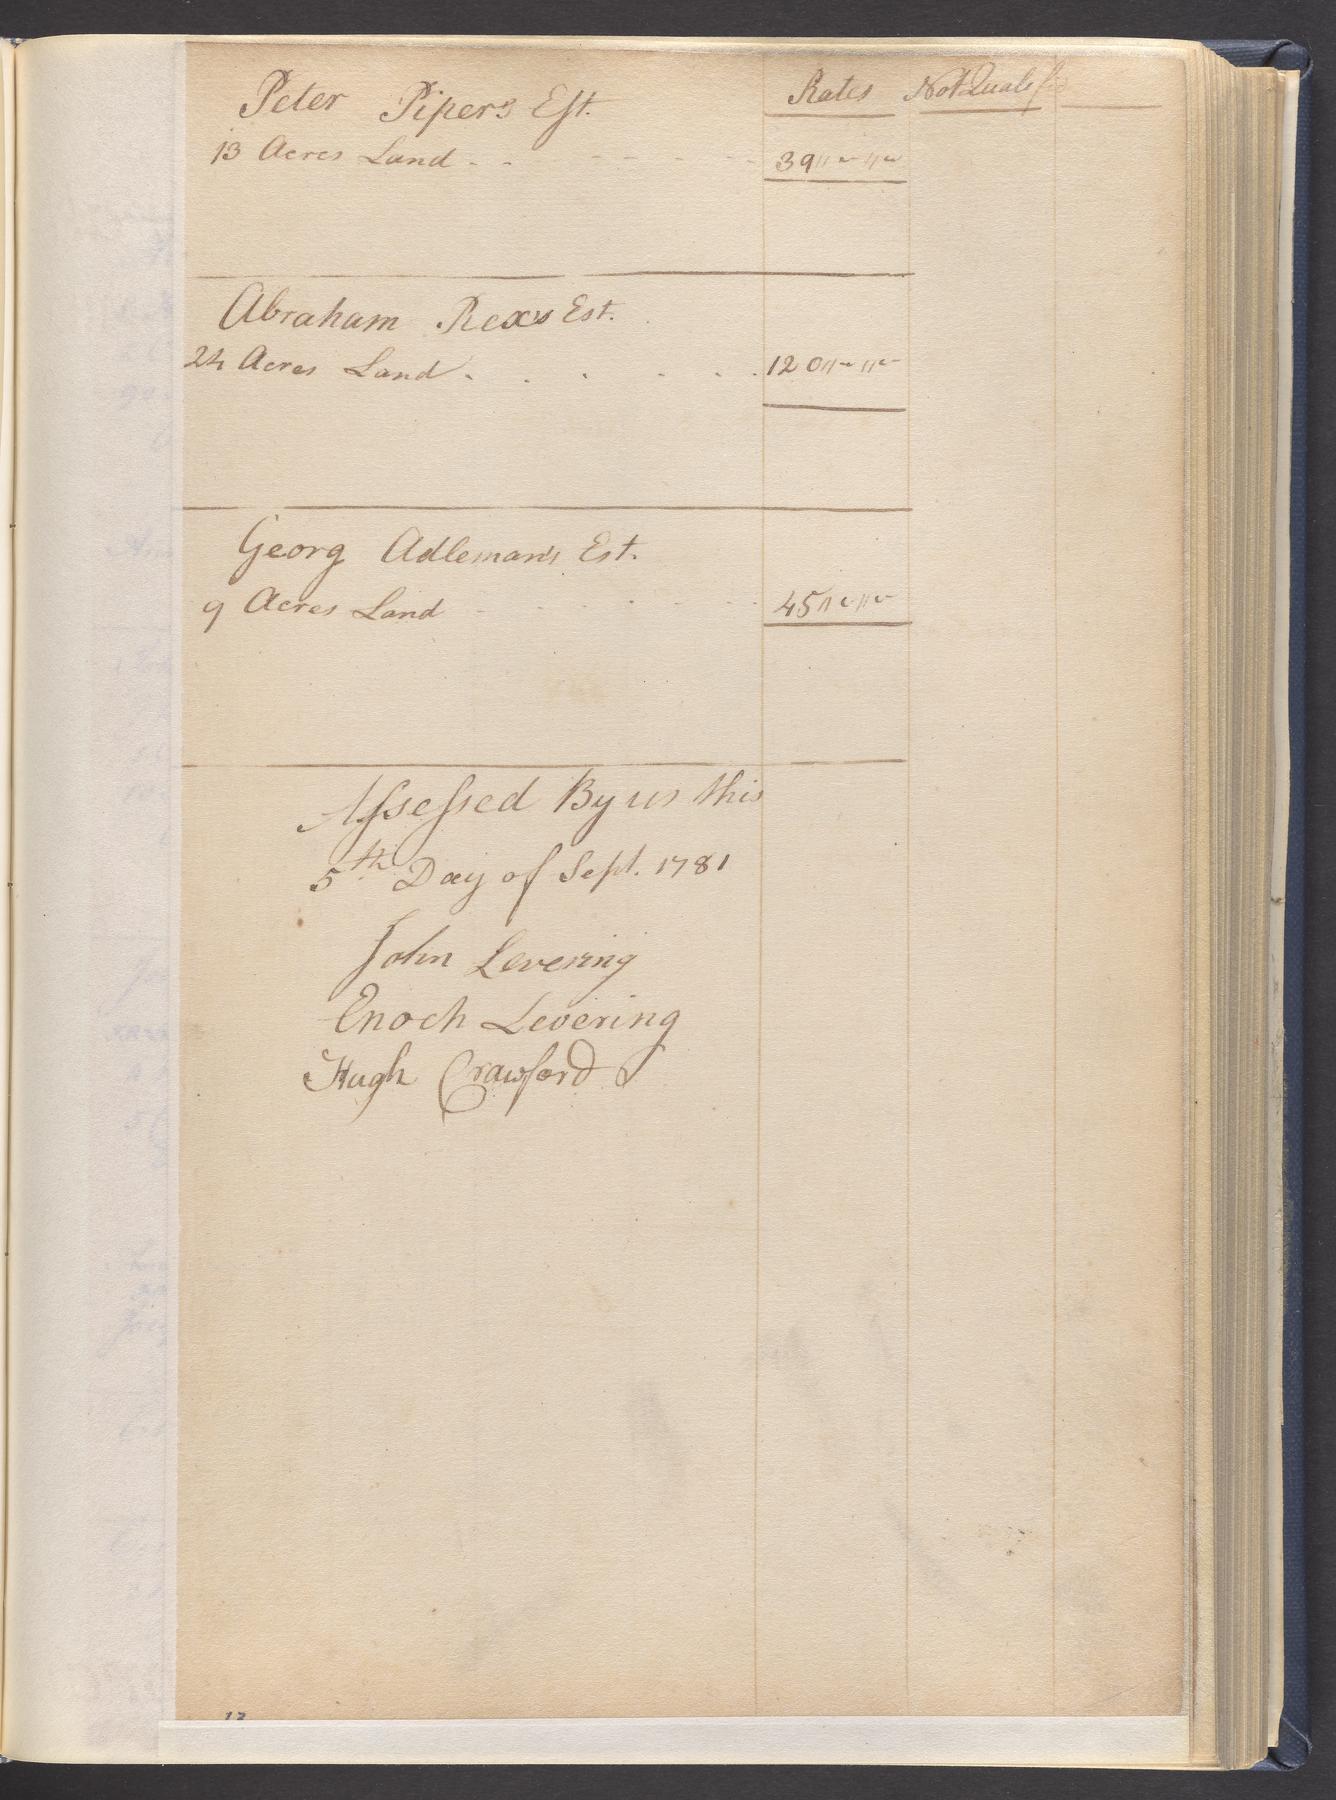 Peter Pipers Est. Rates Not Qualified
13 Acres Land - - - - - - - 39 " ~ " ~
Abraham Rex's Est.
24 Acres Land . . . . . . 120 " ~ " ~
Georg Adleman's Est.
9 Acres Land - - - - - - 45 " ~ " ~
Assessed By us this
5th Day of Sept. 1781
John Levering
Enoch Levering
Hugh Crawford